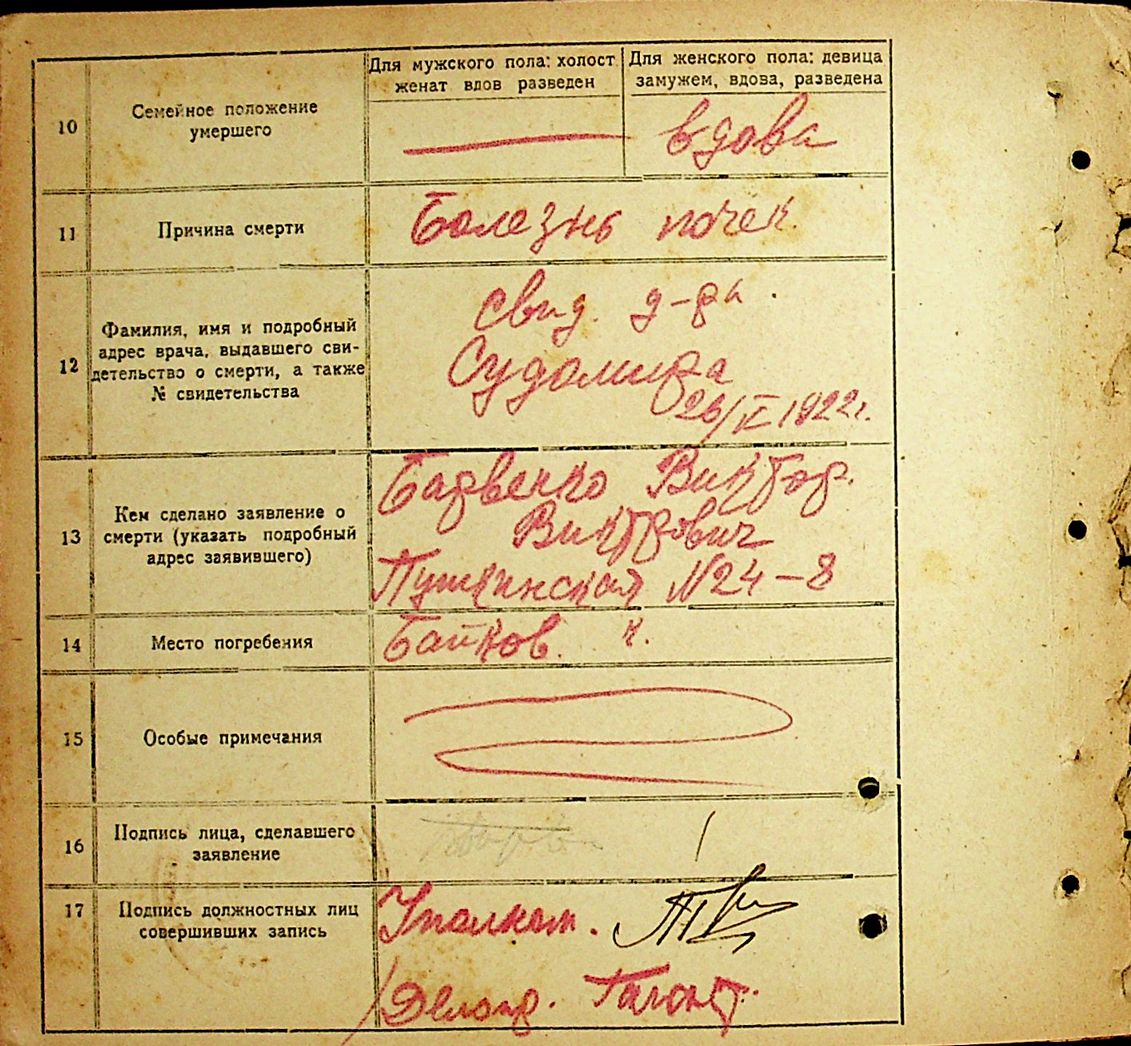 Для мужского пола: холост
женат вдов разведен
Для женского пола: девица
замужем, вдова, разведена
10
Семейное положение
умершего
вдова
11
Причина смерти
Болезнь почек.
12
Фамилия, имя и подробный
адрес врача, выдавшего сви-
детельство о смерти, а также
№ свидетельства
свид. д-ра.
Судомира
1922г.
13
Кем сделано заявление о
смерти (указать подробный
адрес заявившего)
Барвенко Виктор.
Викторович
Пушкинская N24-8
14
Место погребения
Байков. к.
15
Особые примечания
16
Подпись лица, сделавшего
заявление
17
Подпись должностных лиц
совершивших запись
Уполном.
Делопр.